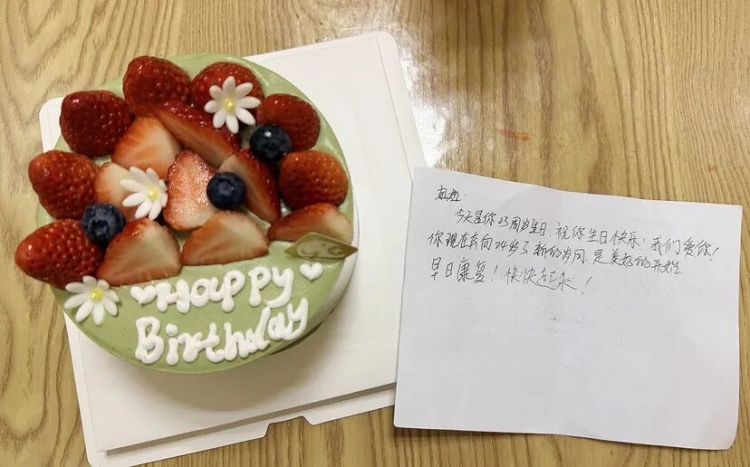 Happy
Birthday
今天是你23周岁生日,祝你生日快乐!我们爱你!
你现在奔向24岁了,新的岁月,是美好的开始
早日康复!快快起来!